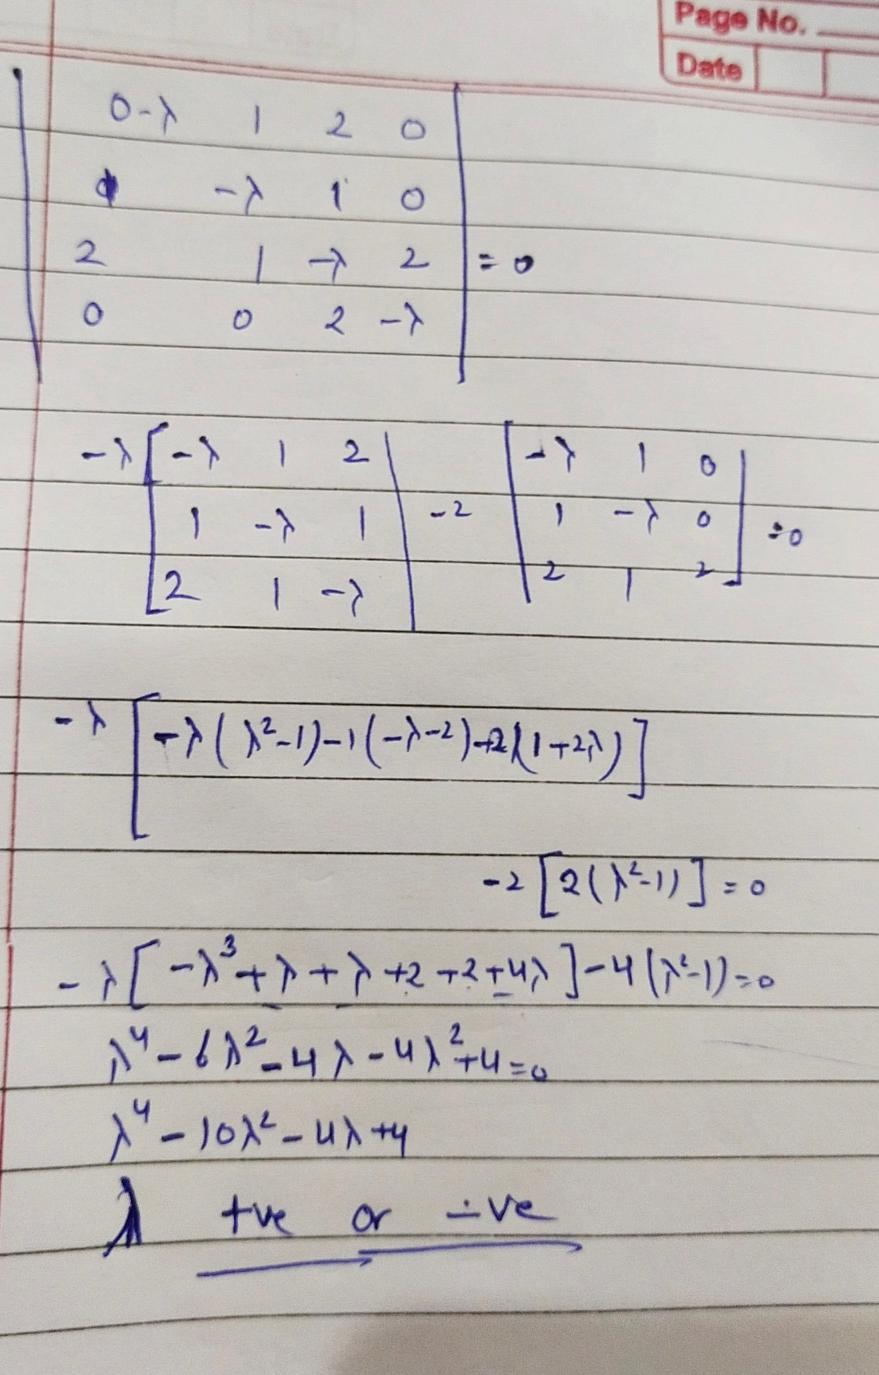 Page No.
Date
0-λ 1 2 0
1 -λ 1 0
2 1 -λ 2 = 0
0 0 2 -λ
-λ [-λ 1 2 | -2 [-λ 1 0
1 -λ 1 1 -λ 0 = 0
2 1 -λ 2 1 2
-λ [-λ(λ²-1)-1(-λ-2)+2(1+2λ)]
-2[2(λ²-1)] = 0
-λ[-λ³+λ+λ+2+2+4λ]-4(λ²-1)=0
λ⁴-6λ²-4λ-4λ²+4=0
λ⁴-10λ²-4λ+4
λ +ve or -ve